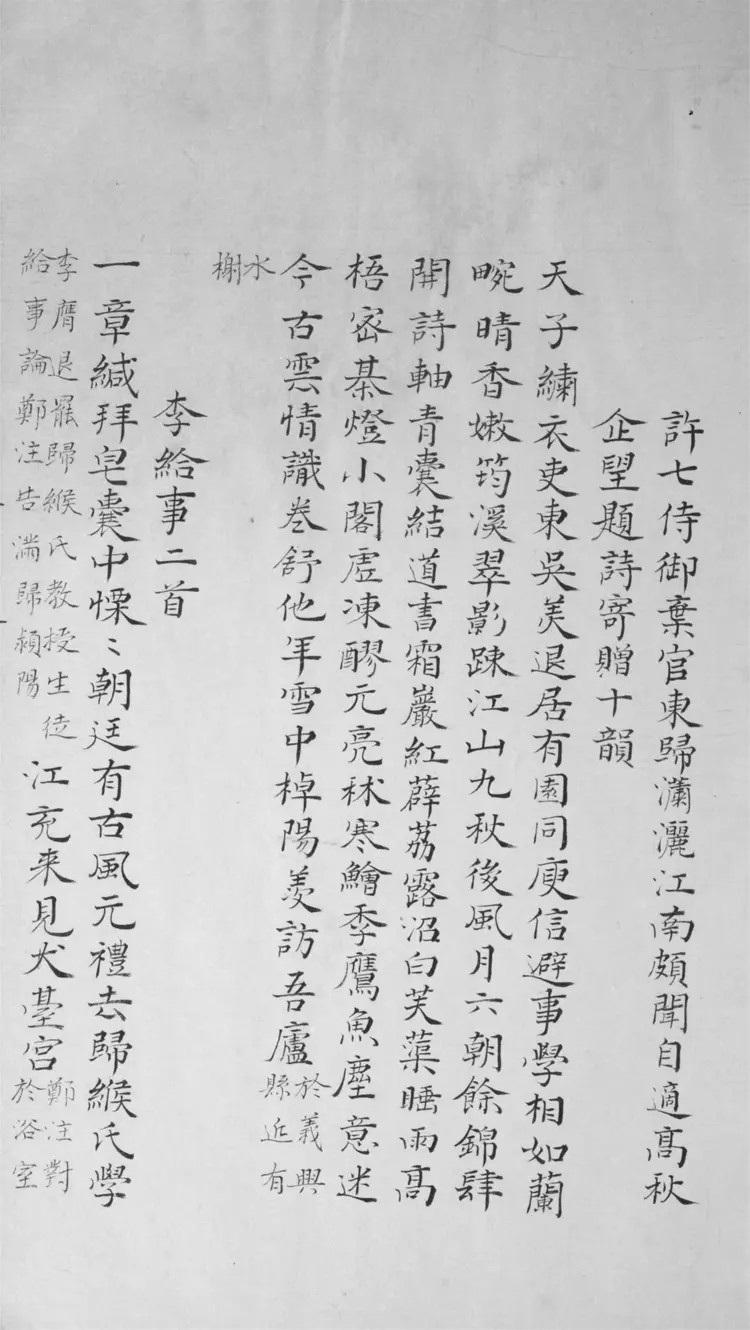 許七侍御棄官東歸瀟灑江南頗聞自適高秋
企望題詩寄贈十韻
天子繡衣吏東吳美退居有園同庾信避事學相如蘭
畹晴香嫩筠溪翠影踈江山九秋後風月六朝餘錦肆
開詩軸青囊結道書霜巖紅薜荔露沼白芙蕖睡雨高
梧密棊燈小閣虛凍醪元亮秫寒鱠季鷹魚塵意迷
今古雲情識卷舒他年雪中棹陽羨訪吾廬於義興縣近有
水榭
李給事二首
一章緘拜皂囊中慄〻朝廷有古風元禮去歸緱氏學
李膺退罷歸緱氏教授生徒給事論鄭注告滿歸潁陽江充來見犬臺宮鄭注對於浴室